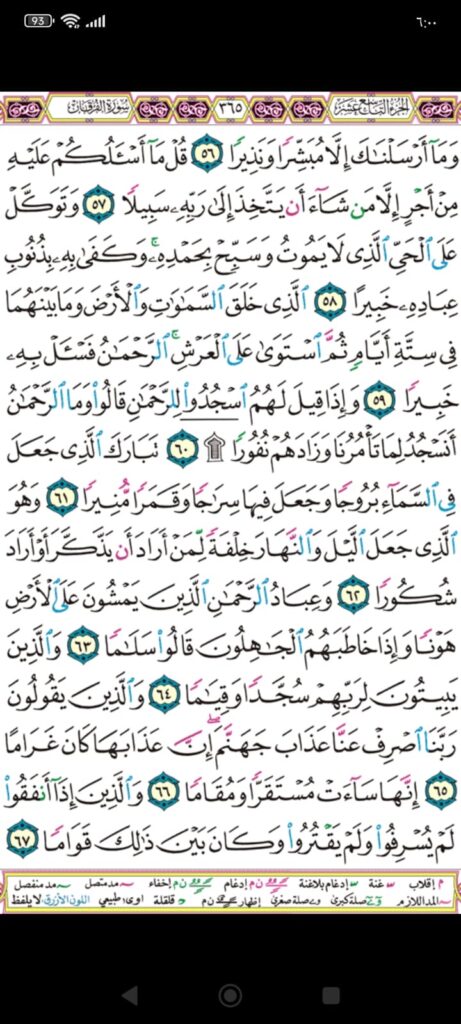 93 ٦:٠٠
الجزء التاسع عشر ٣٦٥ سورة الفرقان
وَمَآ أَرْسَلْنَٰكَ إِلَّا مُبَشِّرًا وَنَذِيرًا ٥٦ قُلْ مَآ أَسْـَٔلُكُمْ عَلَيْهِ
مِنْ أَجْرٍ إِلَّا مَن شَآءَ أَن يَتَّخِذَ إِلَىٰ رَبِّهِۦ سَبِيلًا ٥٧ وَتَوَكَّلْ
عَلَى ٱلْحَىِّ ٱلَّذِى لَا يَمُوتُ وَسَبِّحْ بِحَمْدِهِۦ ۚ وَكَفَىٰ بِهِۦ بِذُنُوبِ
عِبَادِهِۦ خَبِيرًا ٥٨ ٱلَّذِى خَلَقَ ٱلسَّمَٰوَٰتِ وَٱلْأَرْضَ وَمَا بَيْنَهُمَا
فِى سِتَّةِ أَيَّامٍ ثُمَّ ٱسْتَوَىٰ عَلَى ٱلْعَرْشِ ۚ ٱلرَّحْمَٰنُ فَسْـَٔلْ بِهِۦ
خَبِيرًا ٥٩ وَإِذَا قِيلَ لَهُمُ ٱسْجُدُوا۟ لِلرَّحْمَٰنِ قَالُوا۟ وَمَا ٱلرَّحْمَٰنُ
أَنَسْجُدُ لِمَا تَأْمُرُنَا وَزَادَهُمْ نُفُورًا ۩ ٦٠ تَبَارَكَ ٱلَّذِى جَعَلَ
فِى ٱلسَّمَآءِ بُرُوجًا وَجَعَلَ فِيهَا سِرَٰجًا وَقَمَرًا مُّنِيرًا ٦١ وَهُوَ
ٱلَّذِى جَعَلَ ٱلَّيْلَ وَٱلنَّهَارَ خِلْفَةً لِّمَنْ أَرَادَ أَن يَذَّكَّرَ أَوْ أَرَادَ
شُكُورًا ٦٢ وَعِبَادُ ٱلرَّحْمَٰنِ ٱلَّذِينَ يَمْشُونَ عَلَى ٱلْأَرْضِ
هَوْنًا وَإِذَا خَاطَبَهُمُ ٱلْجَٰهِلُونَ قَالُوا۟ سَلَٰمًا ٦٣ وَٱلَّذِينَ
يَبِيتُونَ لِرَبِّهِمْ سُجَّدًا وَقِيَٰمًا ٦٤ وَٱلَّذِينَ يَقُولُونَ
رَبَّنَا ٱصْرِفْ عَنَّا عَذَابَ جَهَنَّمَ ۖ إِنَّ عَذَابَهَا كَانَ غَرَامًا
٦٥ إِنَّهَا سَآءَتْ مُسْتَقَرًّا وَمُقَامًا ٦٦ وَٱلَّذِينَ إِذَآ أَنفَقُوا۟
لَمْ يُسْرِفُوا۟ وَلَمْ يَقْتُرُوا۟ وَكَانَ بَيْنَ ذَٰلِكَ قَوَامًا ٦٧
م إقلاب غنة إدغام بلاغنة ن م إدغام ن م إخفاء مد متصل مد منفصل
المد اللازم صلة كبرى صلة صغرى إظهار ن م قلقلة اوى: طبيعي اللون الأزرق: لا يلفظ